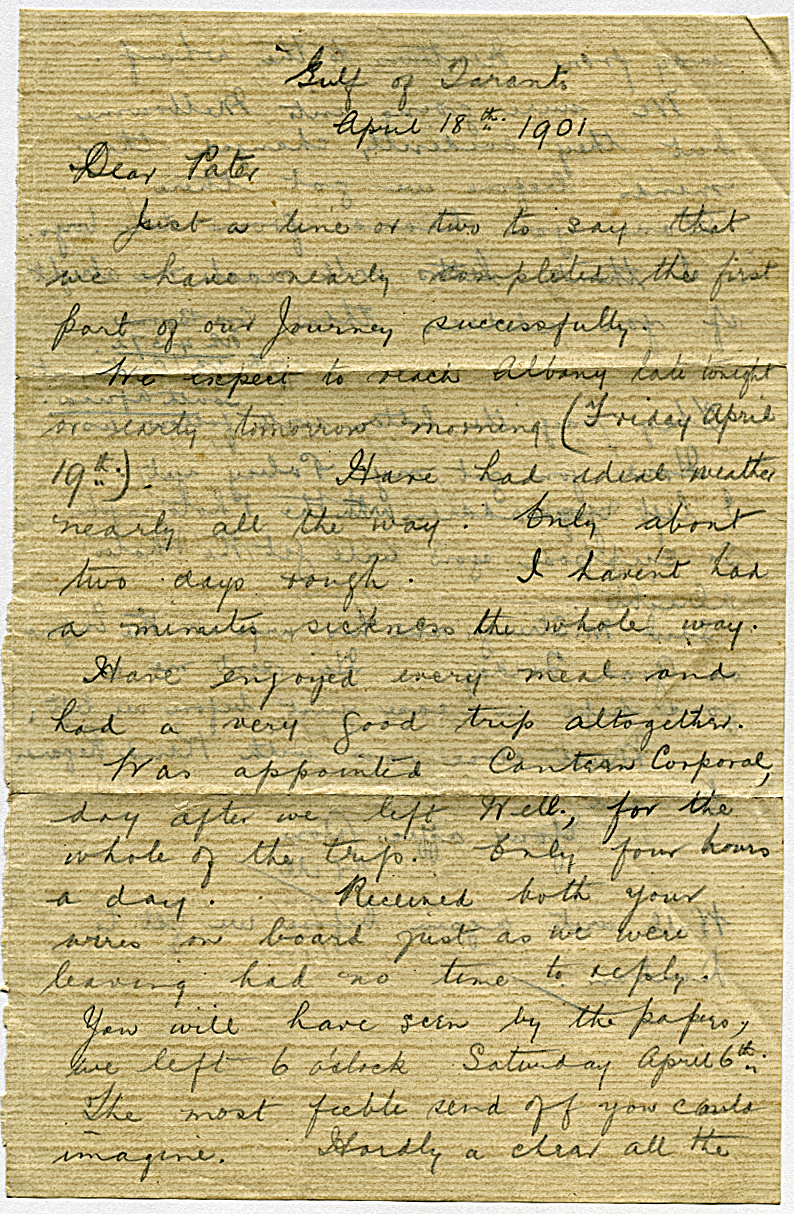 "Gulf of Taranto"
April 18th. 1901
Dear Pater
Just a line or two to say that
we have nearly completed the first
part of our Journey successfully
We expect to reach Albany late tonight
or early tomorrow morning (Friday April
19th.). Have had ideal weather
nearly all the way. Only about
two days rough. I haven't had
a minutes sickness the whole way.
Have enjoyed every meal and
had a very good trip altogether.
Was appointed Canteen Corporal,
day after we left Well., for the
whole of the trip. Only four hours
a day. Received both your
wires on board just as we were
leaving had no time to reply.
You will have seen by the papers,
we left 6 o'clock Saturday April 6th.
The most feeble send off you could
imagine. Hardly a chear all the